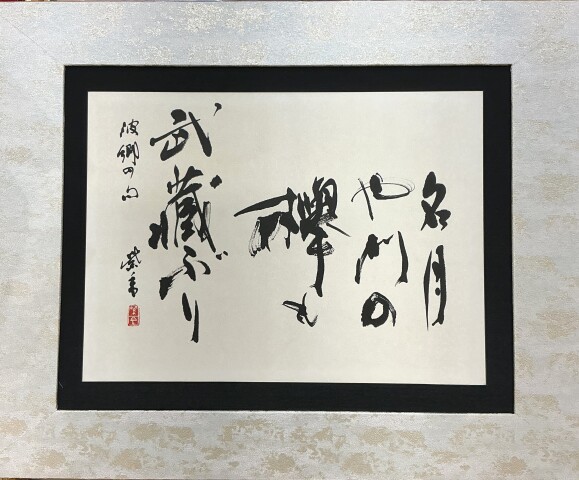 名月
や門の
欅も
武蔵ぶり
波郷の句
紫香